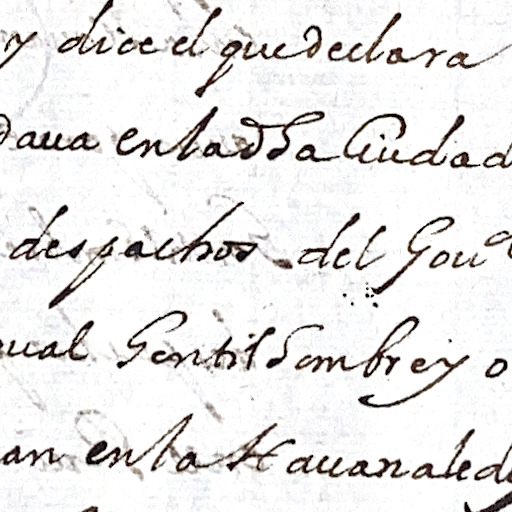 y dice el que declara
dava en la dha Ciudad
despachos del Gou
ual Gentilhombre y o
an en la Havana le d